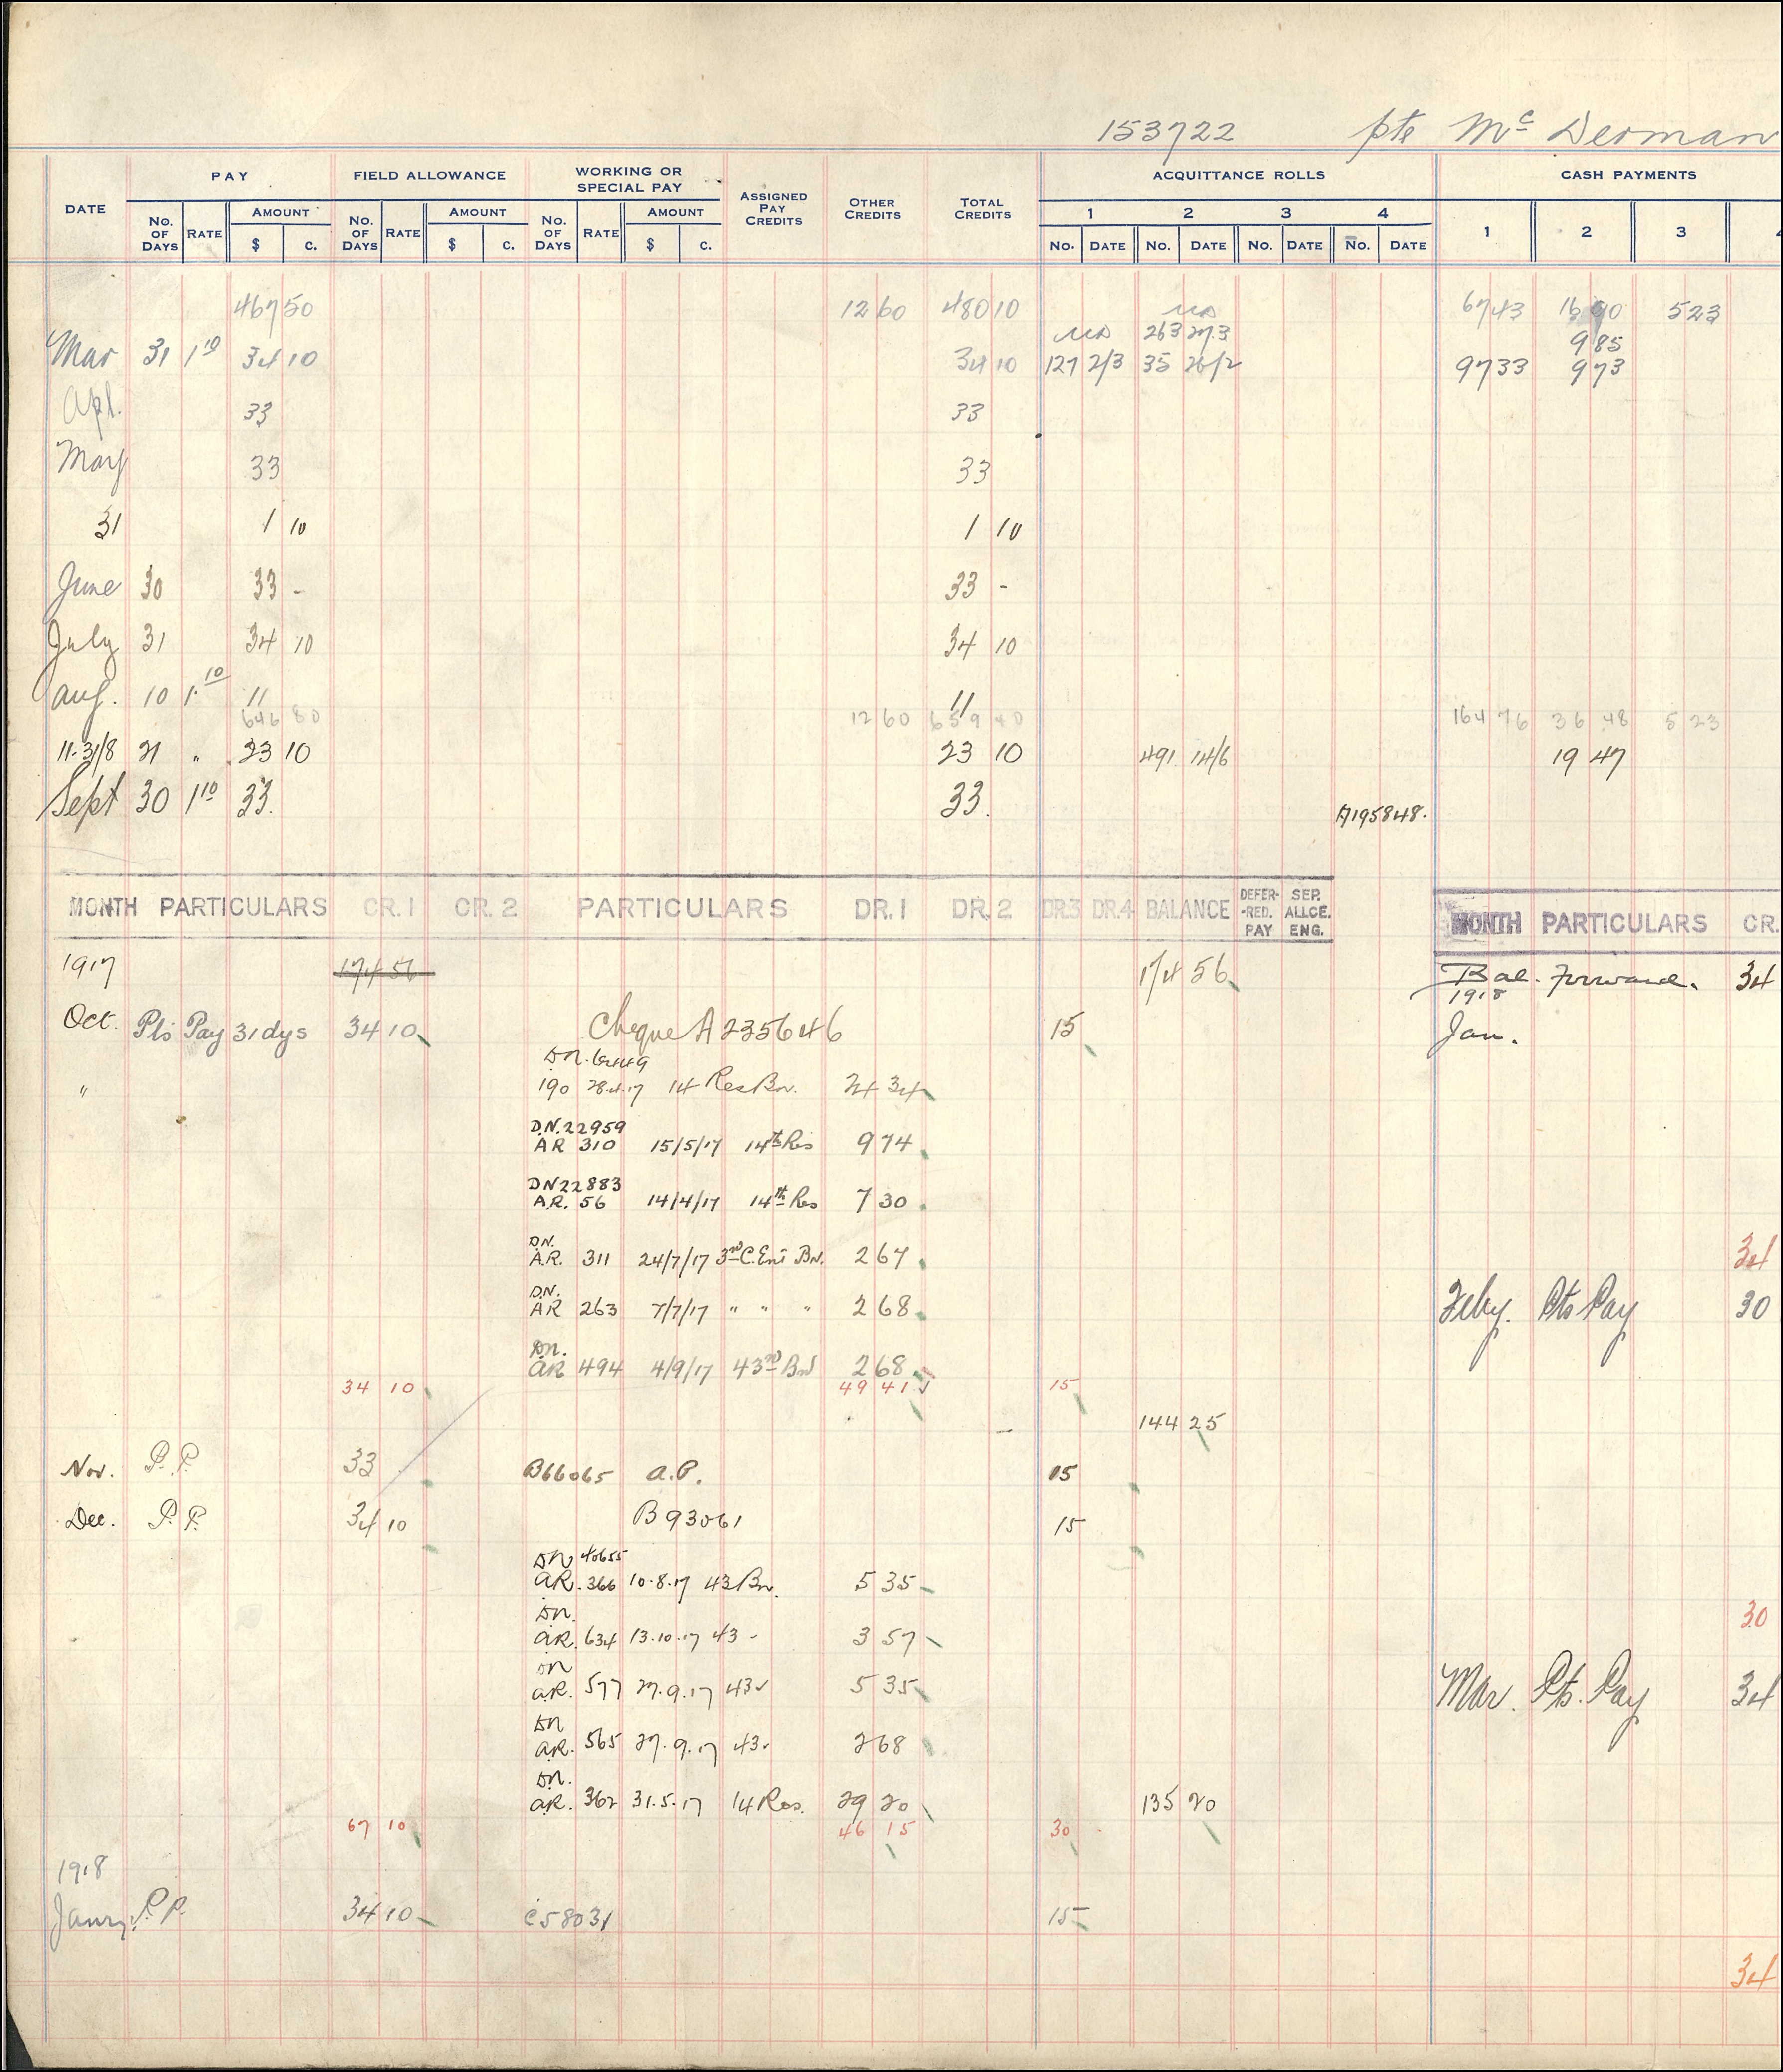 153722 pte Mc Derman
DATE PAY FIELD ALLOWANCE WORKING OR SPECIAL PAY ASSIGNED PAY CREDITS OTHER CREDITS TOTAL CREDITS ACQUITTANCE ROLLS CASH PAYMENTS
AMOUNT AMOUNT AMOUNT 1 2 3 4 1 2 3
No. OF DAYS RATE $ c. No. OF DAYS RATE $ c. No. OF DAYS RATE $ c. No. DATE No. DATE No. DATE No. DATE
467 50 12 60 480 10 67 43 16 90 5 23
263 27.3 9 85
Mar 31 1 10 34 10 34 10 127 2/3 35 26/2 97 33 9 73
Apl. 33 33
May 33 33
31 1 10 1 10
June 30 33 - 33 -
July 31 34 10 34 10
Aug. 10 1.10 11 11
646 80 12 60 659 40 164 76 36 48 5 23
11-31/8 21 " 23 10 23 10 491 14/6 19 47
Sept 30 1 10 33. 33. A195848.
MONTH PARTICULARS CR. 1 CR. 2 PARTICULARS DR. 1 DR. 2 DR. 3 DR. 4 BALANCE DEFER-RED. PAY SEP. ALLCE. ENG. MONTH PARTICULARS CR.
1917 174 56 174 56 Bal. Forward. 34
1918
Oct. Pts Pay 31 dys 34 10 Cheque A 235646 15 Jan.
" 190 28.4.17 14 Res Bn. 24 34
D.N. 22959
AR 310 15/5/17 14th Res 9 74
DN 22883
A.R. 56 14/4/17 14th Res 7 30
D.N.
A.R. 311 24/7/17 3rd C. Ent Bn. 2 67 34
D.N.
AR 263 7/7/17 " " " 2 68 Feby. Pts Pay 30
DN.
AR 494 4/9/17 43rd Bn 2 68
34 10 49 41 15
144 25
Nov. P.P. 33 B66065 A.P. 15
Dec. P.P. 34 10 B93061 15
DN 40655
AR. 366 10.8.17 43 Bn. 5 35
DN.
AR. 634 13.10.17 43 - 3 57 30
DN
AR. 577 27.9.17 43 5 35 Mar. Pts. Pay 34
DN
AR. 565 27.9.17 43 2 68
DN.
AR. 362 31.5.17 14 Res. 29 20 135 20
67 10 46 15 30 -
1918
Janry. P.P. 34 10 C58031 15
34